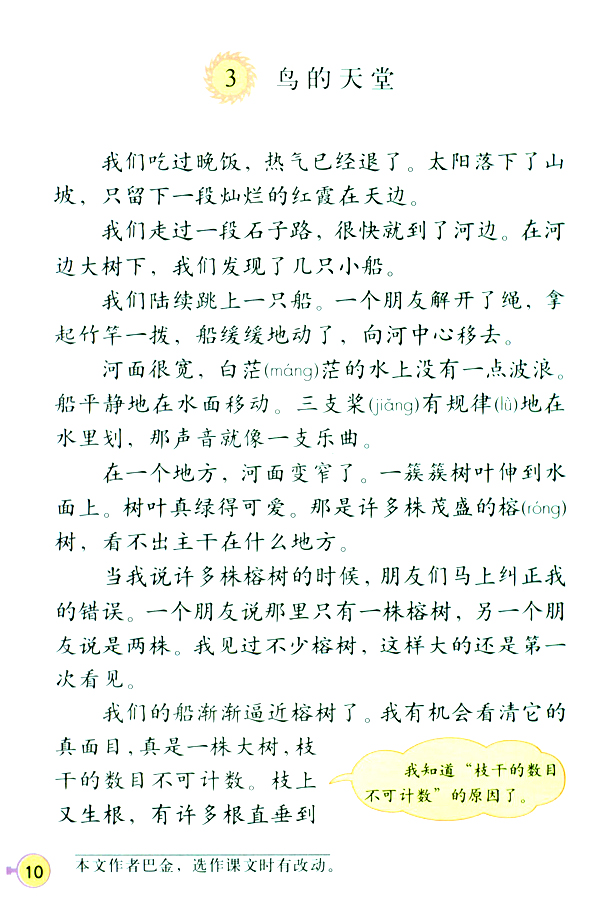 3 鸟的天堂
我们吃过晚饭，热气已经退了。太阳落下了山
坡，只留下一段灿烂的红霞在天边。
我们走过一段石子路，很快就到了河边。在河
边大树下，我们发现了几只小船。
我们陆续跳上一只船。一个朋友解开了绳，拿
起竹竿一拨，船缓缓地动了，向河中心移去。
河面很宽，白茫(máng)茫的水上没有一点波浪。
船平静地在水面移动。三支桨(jiǎng)有规律(lǜ)地在
水里划，那声音就像一支乐曲。
在一个地方，河面变窄了。一簇簇树叶伸到水
面上。树叶真绿得可爱。那是许多株茂盛的榕(róng)
树，看不出主干在什么地方。
当我说许多株榕树的时候，朋友们马上纠正我
的错误。一个朋友说那里只有一株榕树，另一个朋
友说是两株。我见过不少榕树，这样大的还是第一
次看见。
我们的船渐渐逼近榕树了。我有机会看清它的
真面目，真是一株大树，枝
干的数目不可计数。枝上
又生根，有许多根直垂到
我知道“枝干的数目
不可计数”的原因了。
本文作者巴金，选作课文时有改动。
10